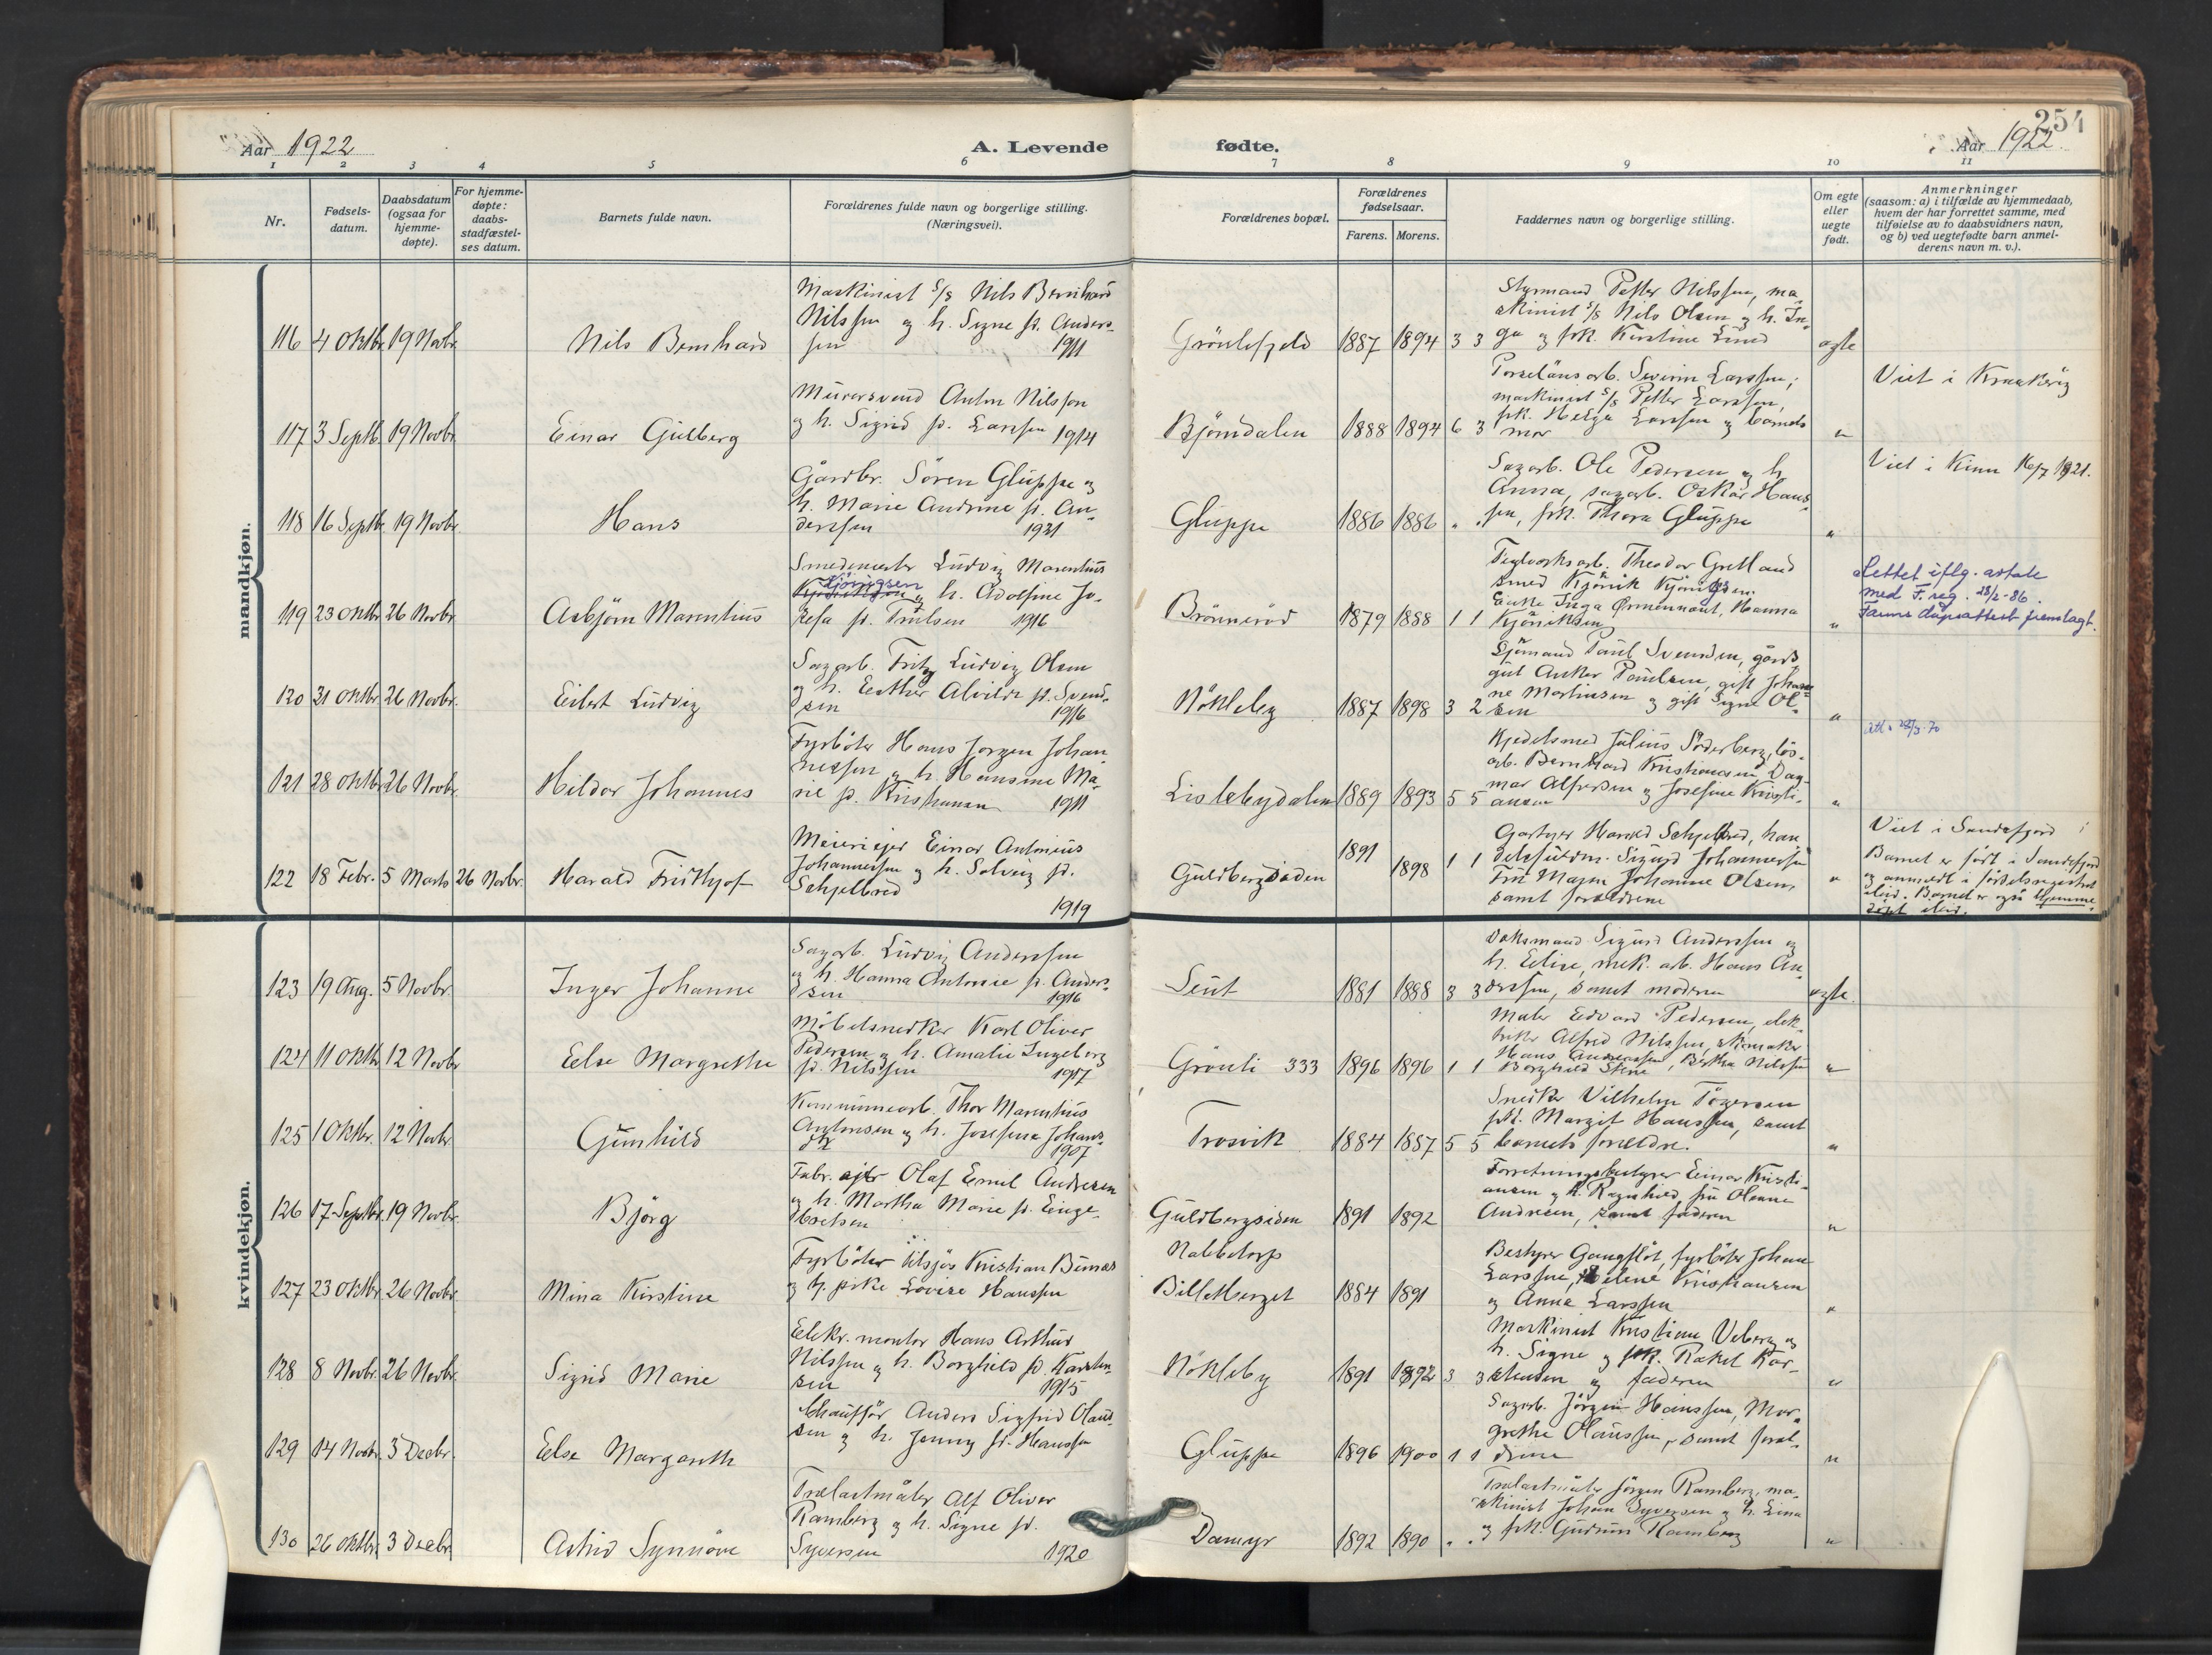 Aar 1922
A. Levende
fødte.
254
Aar 1922.
1 2 3 4 5 6 7 8 9 10 11
Nr.
Fødsels-
datum.
Daabsdatum
(ogsaa for
hjemme-
døpte).
For hjemme-
døpte:
daabs-
stadfæstel-
ses datum.
Barnets fulde navn.
Forældrenes fulde navn og borgerlige stilling.
(Næringsvei).
Forældrenes bopæl.
Forældrenes
fødselsaar.
Farens. Morens.
Faddernes navn og borgerlige stilling.
Om egte
eller
uegte
født.
Anmerkninger
(saasom: a) i tilfælde av hjemmedaab,
hvem der har forrettet samme, med
tilføielse av to daabsvidners navn,
og b) ved uegtefødte barn anmel-
derens navn m. v.).
mandkjøn.
116 4 Oktbr. 19 Novbr.
Nils Bernhard
Maskinist s/s Nils Bernhard
Nilssen og h. Signe f. Anders-
sen 1911
1887 1894 3 3
Styrmand Petter Nilssen, ma-
skinist s/s Nils Olsen og h. In-
ga og frk. Kirstine Lund
ægte
117 3 Septb. 19 Novbr.
Einar Gulberg
Murersvend Anton Nilssen
og h. Sigrid f. Larssen 1914
Bjørndalen
1888 1894 6 3
Porselænsarb. Larssen,
maskinist s/s Petter Larssen,
frk. Helga Larssen og barnets
mor
"
Viet i Kraakerøy
118 16 Septbr. 19 Novbr.
Hans
Gårdbr. Søren Gluppe og
h. Marie Andrine f. An-
derssen 1921
Gluppe
1886 1886 " "
Sagarb. Ole Pedersen og h.
Anna, sagarb. Oskar Hans-
sen, frk. Thora Gluppe
"
Viet i Kinn 16/7 1921.
119 23 Oktbr. 26 Novbr.
Asbjørn Marentius
Smedemester Ludvig Marentius
Kjønigsen
og h. Adolfine Jo-
sefa f. Trulsen 1916
Brønnerød
1879 1888 1 1
Teglverksarb. Theodor Gretland
smed Kjønik Kjønigsen.
Enke Inga Ørmennant, Hanna
Kjøniksen
"
Rettet iflg. avtale
med F. reg. 28/2-86.
Farens dåpsattest fremlagt.
120 31 Oktbr. 26 Novbr.
Eilert Ludvig
Sagarb. Fritz Ludvig Olsen
og h. Esther Alvilde f. Svend-
sen 1916
Nøkleby
1887 1898 3 2
Sjømand Paul Svendsen, gårds-
gut Anker Paulsen, gift Johan-
ne Martinsen og gift Signe Ol-
sen
"
121 28 Oktbr. 26 Novbr.
Hildor Johannes
Fyrbøter Hans Jørgen Johan-
nessen og h. Hansine Ma-
rie f. Kristiansen 1911
Lislebydalen
1889 1893 5 5
Kjedelsmed Julius Søderberg, løs-
arb. Bernhard Kristiansen, Dag-
mar Alfredsen og Josefine Kristi-
ansen
"
122 18 Febr. 5 Marts 26 Novbr.
Harald Fridthjof
Meierieier Einar Antonius
Johannessen og h. Solveig f.
Schjelbred
1919
Guldbergsiden
1891 1898 1 1
Gartner Harald Schjelbred, han-
delsfuldm. Sigurd Johannessen
Fru Maren Johanne Olsen,
samt forældrene
"
Viet i Sandefjord
Barnet er født i Sandefjord
og anmeldt i fødselsregistret
der. Barnet er også hjemme-
døpt der.
kvindekjøn.
123 19 Aug. 5 Novbr.
Inger Johanne
Sagarb. Ludvig Anderssen
og h. Hanna Antonie f. Anders-
sen 1916
Leut
1881 1888 3 3
Vaksmand Sigurd Anderssen og
h. Elise, mek. arb. Hans An-
derssen, samt moderen
ægte.
124 11 Oktbr. 12 Novbr
Else Margrethe
Møbelsnedker Karl Oliver
Pedersen og h. Amalie Ingeborg
f. Nilssen 1917
Grønli 333
1896 1896 1 1
Maler Edvard Pedersen, elek-
triker Alfred Nilssen, skomaker
Hans Andreassen, Bertha Nilssen
Borghild Stene
"
125 1 Oktbr. 12 Novbr
Gunhild
Kommunearb. Thor Marentius
Antonsen og h. Josefine Johans-
dtr 1907
Trosvik
1884 1887 5 5
Snedker Vilhelm Tøgersen
frk. Margit Hanssen, samt
barnets forældre.
"
126 17 Septbr. 19 Novbr.
Bjørg
Fabr. eier Olaf Emil Andresen
og h. Martha Marie f. Enge-
bretsen
Guldbergsiden
1891 1892
Forretningsbestyrer Einar Kristi-
ansen og h. Ragnhild, fru Olanne
Andresen, samt faderen
"
127 23 Oktbr. 26 Novbr.
Mina Kirstine
Fyrbøter Kristian
og h. Lovise Hanssen
Nabbetorp
Billetberget
1884 1891
Bestyrer Gangfløt, fyrbøter Johan
Larssen, Helene Kristiansen
og Anna Larssen
"
128 8 Novbr. 26 Novbr.
Sigrid Marie
Elektr. montør Hans Arthur
Nilssen og h. Borghild f. Karsten-
sen 1915
Nøkleby
1891 1892 3 3
Maskinist Kristian Veberg og
h. Signe og frk. Rakel Kar-
stensen og faderen
"
129 14 Novbr. 3 Decbr.
Else Margareth
Chauffør Anders Sigfrid Olaus-
sen og h. Jenny f. Hanssen
Gluppe
1896 1900 1 1
Sagarb. Jørgen Hanssen, Mar-
grethe Olaussen, samt foræl-
drene
"
130 26 Oktbr. 3 Decbr
Astrid Synnøve
Trælastmåler Alf Oliver
Ramberg og h. Signe f.
Syversen 1920
Damyr
1892 1890 " "
Trælastmåler Jørgen Ramberg, ma-
skinist Johan Syversen og h. Lina
og frk. Gudrun Ramberg
"